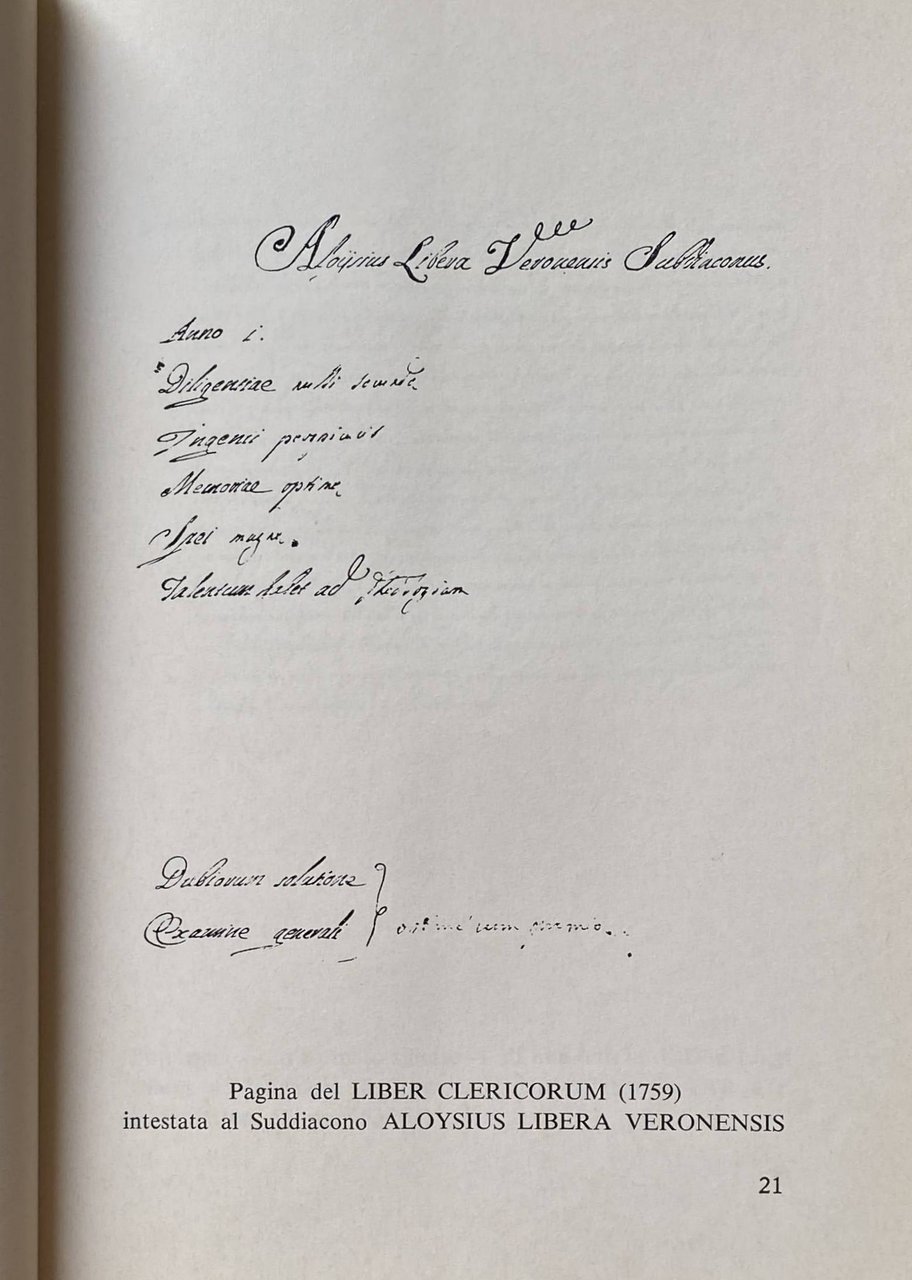 Aloijsius Libera Veronensis Subdiaconus.
Anno i.
Diligentiae nulli secundae
Ingenii perspicacis
Memoriae optime
Spei magne.
Talentum habet ad Theologiam
Dubiorum solutione
Examine generali optime cum premio.
Pagina del LIBER CLERICORUM (1759)
intestata al Suddiacono ALOYSIUS LIBERA VERONENSIS
21